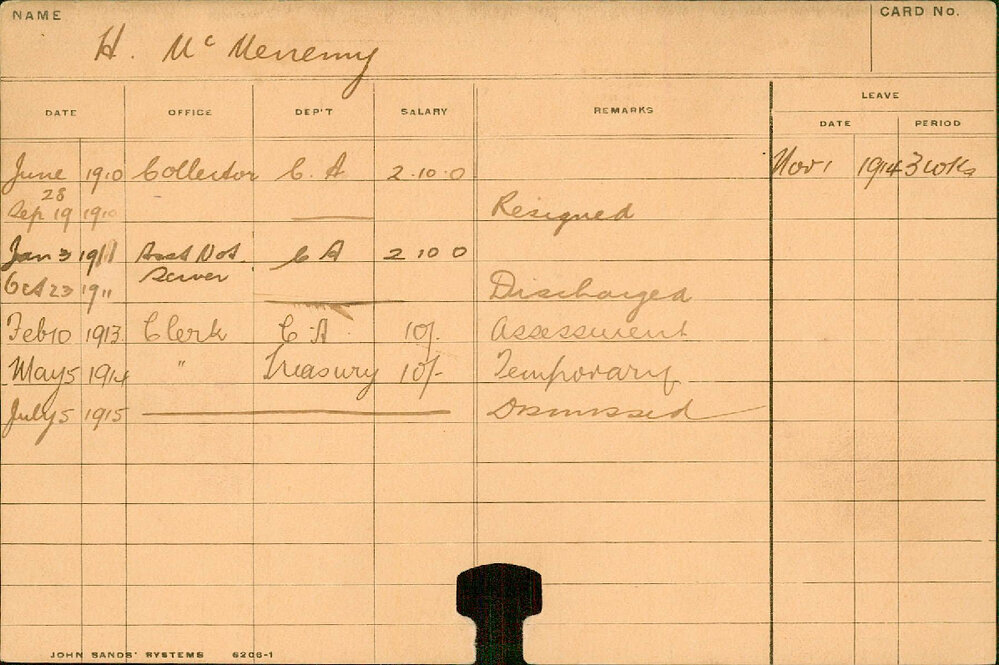 NAME CARD No.
H. McMenemy
LEAVE
DATE OFFICE DEP'T SALARY REMARKS DATE PERIOD
June 1910 Collector C. A 2.10.0 Nov 1 1914 3 wks
28
Sep 19 1910 Resigned
Jan 3 1911 Asst Not. C A 2 10 0
Server
Oct 23 1911 Discharged
Feb 10 1913 Clerk C.A. 10/- Assessment
May 5 1914 " Treasury 10/- Temporary
July 5 1915 Dismissed
JOHN SANDS' SYSTEMS 6206-1